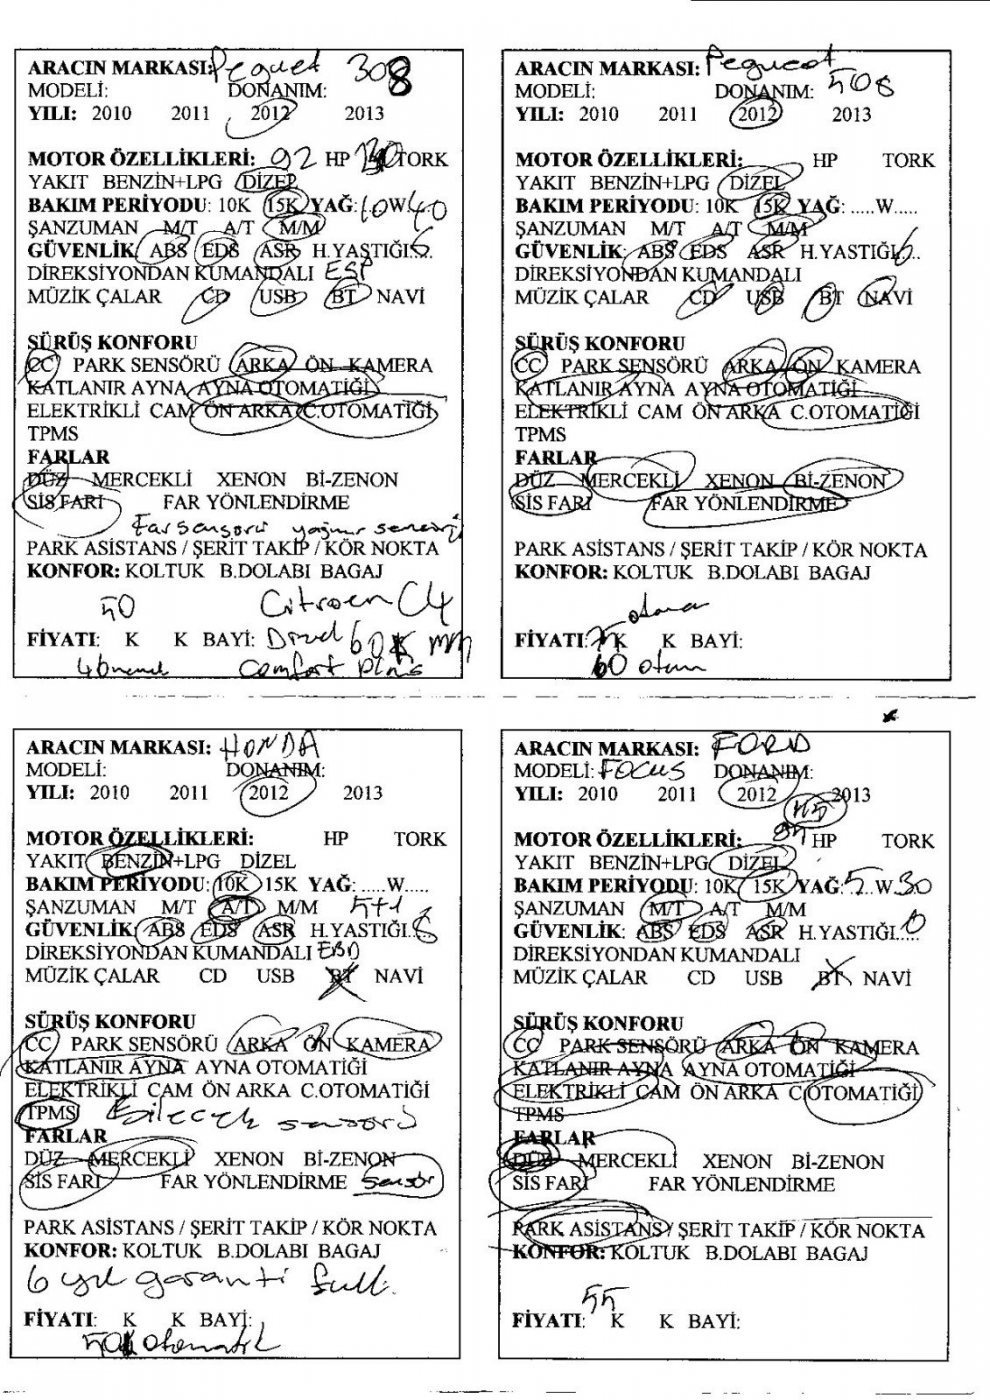 ARACIN MARKASI: Peguet 308
MODELİ: DONANIM:
YILI: 2010 2011 2012 2013
MOTOR ÖZELLİKLERİ: 92 HP TORK
YAKIT BENZİN+LPG DİZEL
BAKIM PERİYODU: 10K 15K YAĞ: 10W40
ŞANZUMAN M/T A/T M/M
GÜVENLİK: ABS EDS ASR H.YASTIĞI.6.
DİREKSİYONDAN KUMANDALI ESP
MÜZİK ÇALAR CD USB BT NAVİ
SÜRÜŞ KONFORU
CC PARK SENSÖRÜ ARKA ÖN KAMERA
KATLANIR AYNA AYNA OTOMATİĞİ
ELEKTRİKLİ CAM ÖN ARKA C.OTOMATİĞİ
TPMS
FARLAR
DÜZ MERCEKLİ XENON Bİ-ZENON
SİS FARI FAR YÖNLENDİRME
Far sensörü yağmur sensörü
PARK ASİSTANS / ŞERİT TAKİP / KÖR NOKTA
KONFOR: KOLTUK B.DOLABI BAGAJ
50 Citroen C4
FİYATI: K K BAYİ: Dizel 60K mm
comfort plus
ARACIN MARKASI: Pegueot
MODELİ: DONANIM: 508
YILI: 2010 2011 2012 2013
MOTOR ÖZELLİKLERİ: HP TORK
YAKIT BENZİN+LPG DİZEL
BAKIM PERİYODU: 10K 15K YAĞ: .....W.....
ŞANZUMAN M/T A/T M/M
GÜVENLİK: ABS EDS ASR H.YASTIĞI.6..
DİREKSİYONDAN KUMANDALI
MÜZİK ÇALAR CD USB BT NAVİ
SÜRÜŞ KONFORU
CC PARK SENSÖRÜ ARKA ÖN KAMERA
KATLANIR AYNA AYNA OTOMATİĞİ
ELEKTRİKLİ CAM ÖN ARKA C.OTOMATİĞİ
TPMS
FARLAR
DÜZ MERCEKLİ XENON Bİ-ZENON
SİS FARI FAR YÖNLENDİRME
PARK ASİSTANS / ŞERİT TAKİP / KÖR NOKTA
KONFOR: KOLTUK B.DOLABI BAGAJ
FİYATI: K K BAYİ:
60
ARACIN MARKASI: HONDA
MODELİ: DONANIM:
YILI: 2010 2011 2012 2013
MOTOR ÖZELLİKLERİ: HP TORK
YAKIT BENZİN+LPG DİZEL
BAKIM PERİYODU: 10K 15K YAĞ: .....W.....
ŞANZUMAN M/T A/T M/M 5+1
GÜVENLİK: ABS EDS ASR H.YASTIĞI..8
DİREKSİYONDAN KUMANDALI EBD
MÜZİK ÇALAR CD USB BT NAVİ
SÜRÜŞ KONFORU
CC PARK SENSÖRÜ ARKA ÖN KAMERA
KATLANIR AYNA AYNA OTOMATİĞİ
ELEKTRİKLİ CAM ÖN ARKA C.OTOMATİĞİ
TPMS sensörü
FARLAR
DÜZ MERCEKLİ XENON Bİ-ZENON
SİS FARI FAR YÖNLENDİRME sensör
PARK ASİSTANS / ŞERİT TAKİP / KÖR NOKTA
KONFOR: KOLTUK B.DOLABI BAGAJ
6 yıl garanti full.
FİYATI: K K BAYİ:
50K otomatik
ARACIN MARKASI: FORD
MODELİ: FOCUS DONANIM:
YILI: 2010 2011 2012 2013
115
MOTOR ÖZELLİKLERİ: 95 HP TORK
YAKIT BENZİN+LPG DİZEL
BAKIM PERİYODU: 10K 15K YAĞ: 5..W.30
ŞANZUMAN M/T A/T M/M
GÜVENLİK: ABS EDS ASR H.YASTIĞI..6
DİREKSİYONDAN KUMANDALI
MÜZİK ÇALAR CD USB BT NAVİ
SÜRÜŞ KONFORU
CC PARK SENSÖRÜ ARKA ÖN KAMERA
KATLANIR AYNA AYNA OTOMATİĞİ
ELEKTRİKLİ CAM ÖN ARKA C.OTOMATİĞİ
TPMS
FARLAR
DÜZ MERCEKLİ XENON Bİ-ZENON
SİS FARI FAR YÖNLENDİRME
PARK ASİSTANS / ŞERİT TAKİP / KÖR NOKTA
KONFOR: KOLTUK B.DOLABI BAGAJ
55
FİYATI: K K BAYİ: